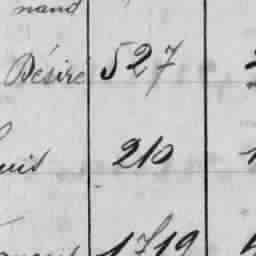 nand
Désiré 527
uis 210
1719